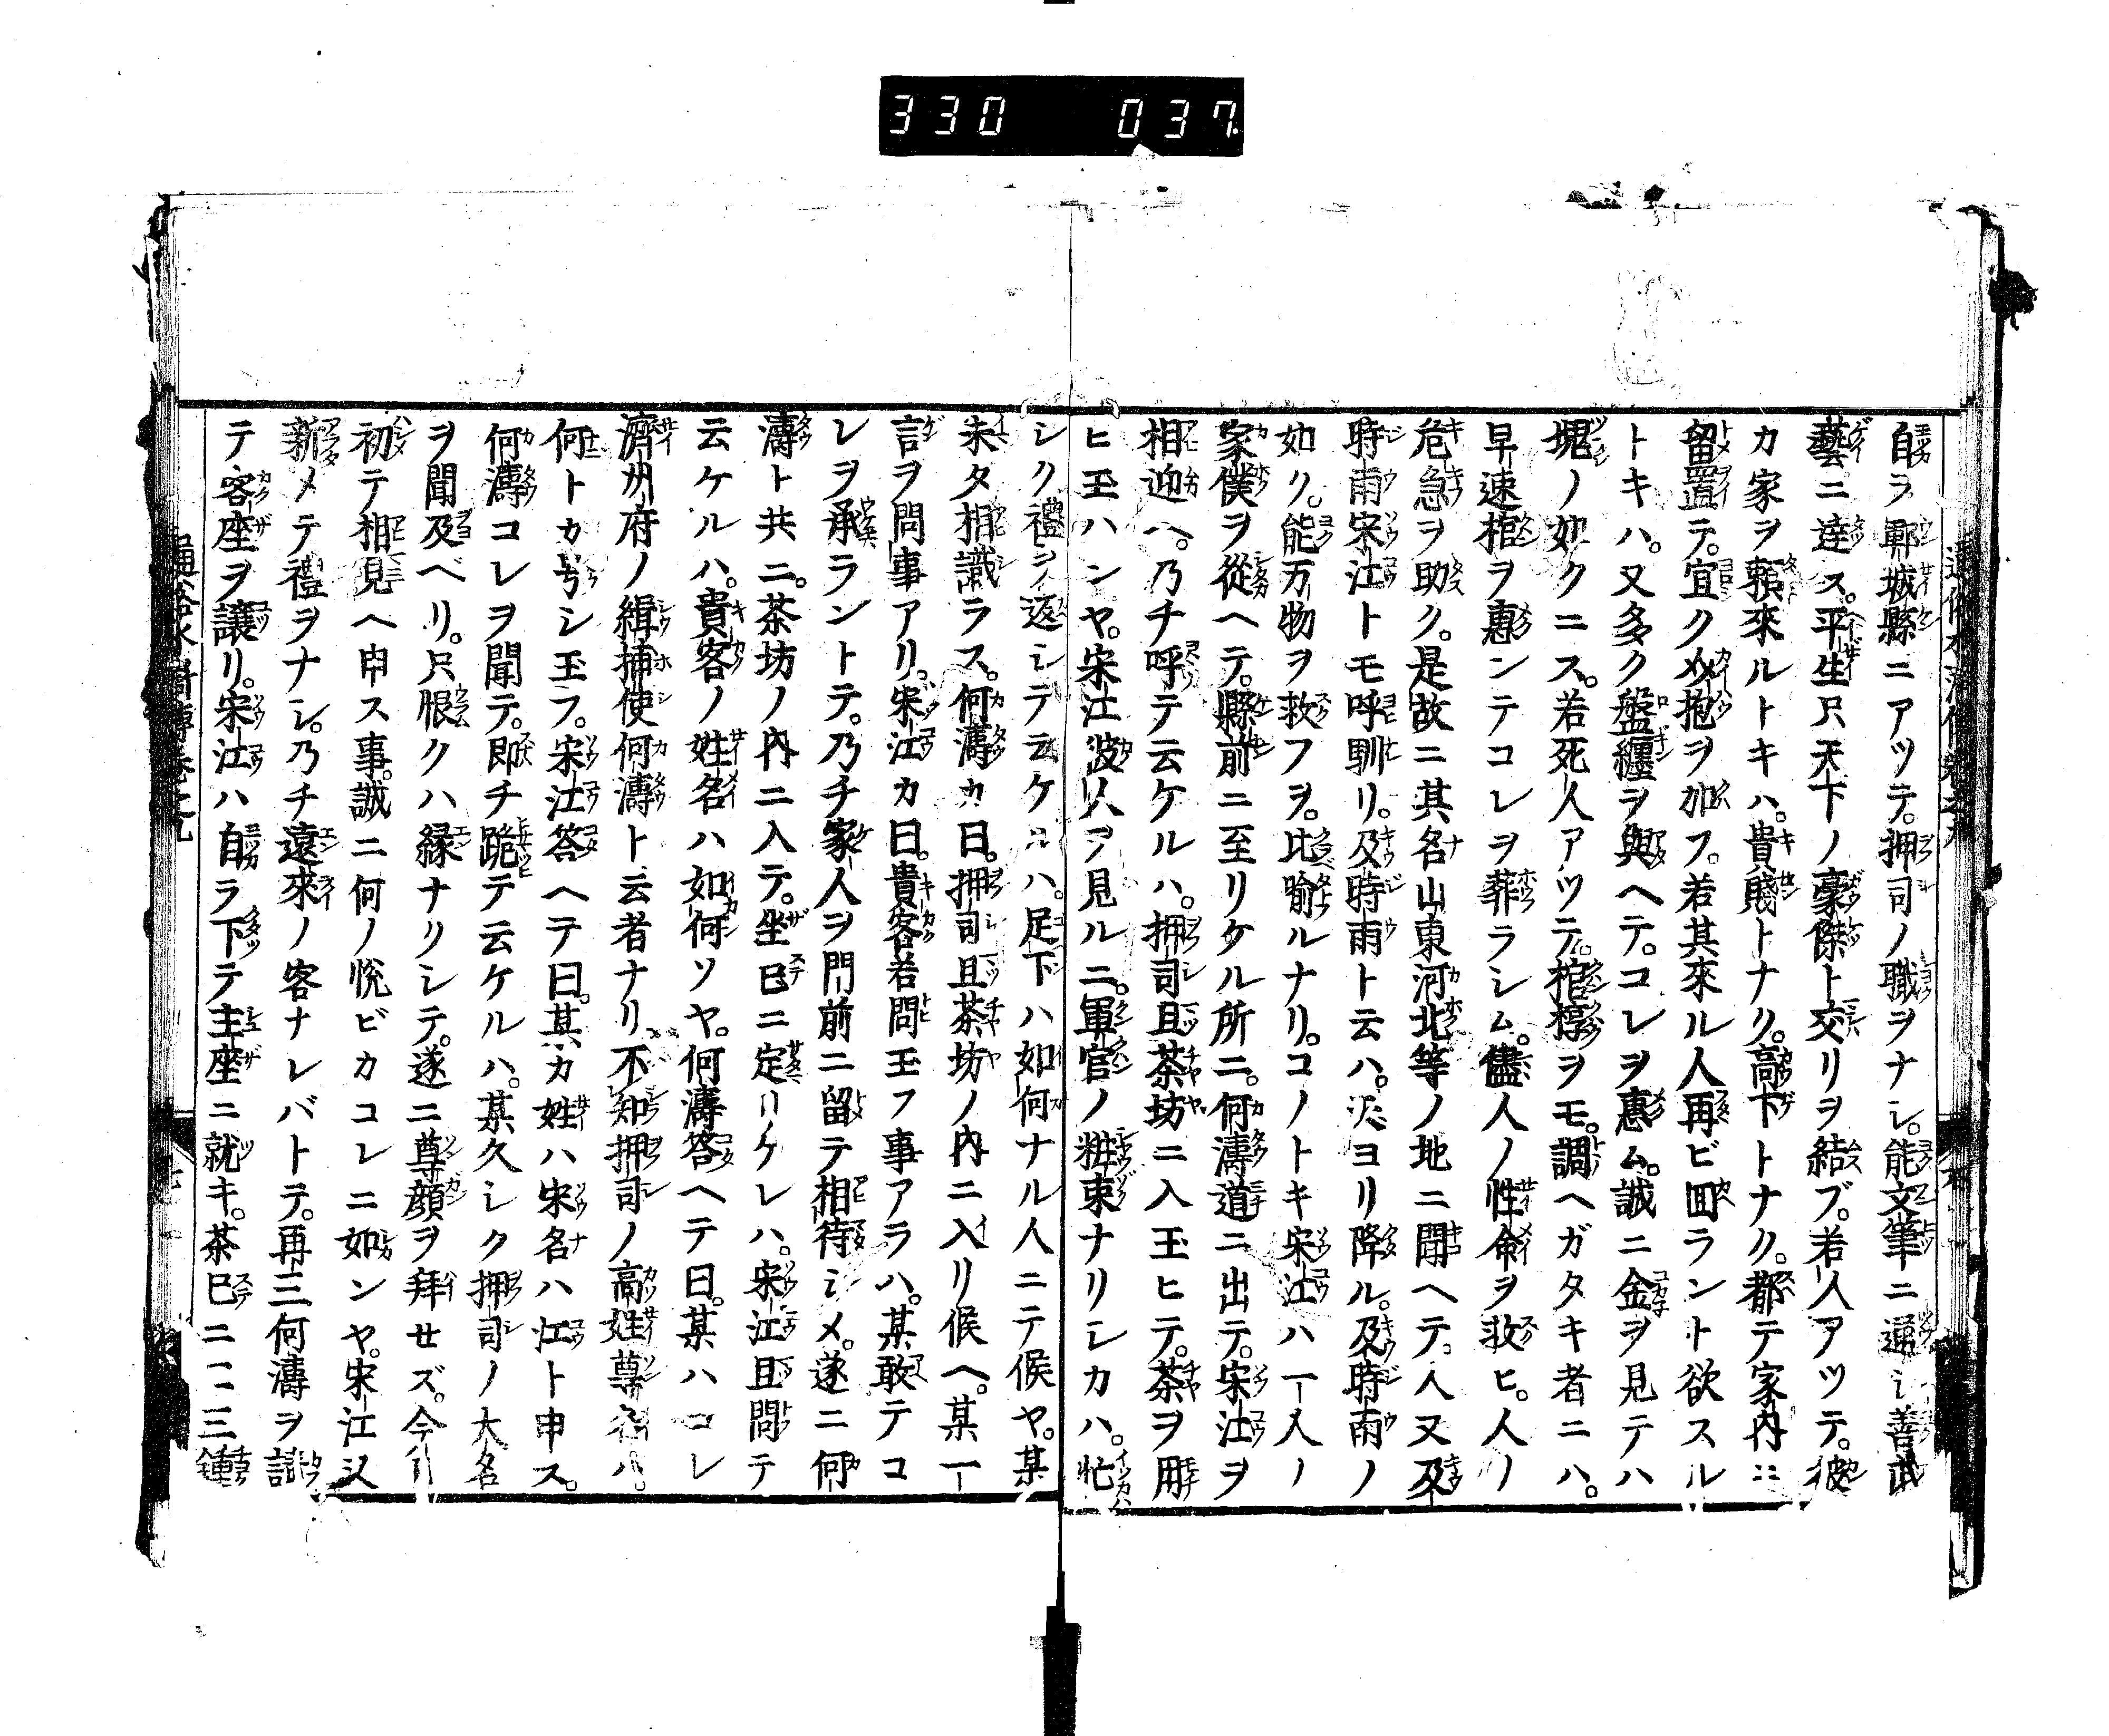 330 037
自ヲ鄆城縣ニアツテ。押司ノ職ヲナシ。能文筆ニ通シ善武
藝ニ達ス。平生只天下ノ豪傑ト交リヲ結ブ。若人アツテ。彼
カ家ヲ頼來ルトキハ。貴賤トナク。高下トナク。都テ家内ニ
留置テ。宜ク介抱ヲ加フ。若其來ル人再ビ回ラント欲スル
トキハ。又多ク盤纏ヲ與ヘテ。コレヲ惠ム。誠ニ金ヲ見テハ
塊ノ如クニス。若死人アツテ。棺椁ヲモ。調ヘガタキ者ニハ。
早速棺ヲ惠ンテコレヲ葬ラシム。儘人ノ性命ヲ救ヒ。人ノ
危急ヲ助ク。是故ニ其名山東河北等ノ地ニ聞ヘテ。人又及
時雨宋江トモ呼馴リ。及時雨ト云ハ。天ヨリ降ル。及時雨ノ
如ク。能万物ヲ救フヲ。比喻ルナリ。コノトキ宋江ハ一人ノ
家僕ヲ從ヘテ。縣前ニ至リケル所ニ。何濤道ニ出テ。宋江ヲ
相迎ヘ。乃チ呼テ云ケルハ。押司且茶坊ニ入玉ヒテ。茶ヲ用
ヒ玉ハンヤ。宋江彼人ヲ見ルニ。軍官ノ粧束ナリシカハ。忙
シク禮ヲ返シテ云ケルハ。足下ハ如何ナル人ニテ候ヤ。某
未タ相識ラス。何濤カ曰。押司且茶坊ノ内ニ入リ候ヘ。某一
言ヲ問事アリ。宋江カ曰。貴客若問玉フ事アラハ。某敢テコ
レヲ承ラントテ。乃チ家人ヲ門前ニ留テ相待シメ。遂ニ何
濤ト共ニ。茶坊ノ内ニ入テ。坐已ニ定リケレハ。宋江且問テ
云ケルハ。貴客ノ姓名ハ如何ソヤ。何濤答ヘテ曰。某ハコレ
濟州府ノ緝捕使何濤ト云者ナリ。不知押司ノ高姓尊名ハ。
何トカ号シ玉フ。宋江答ヘテ曰。某カ姓ハ宋名ハ江ト申ス。
何濤コレヲ聞テ。即チ跪テ云ケルハ。某久シク押司ノ大名
ヲ聞及ベリ。只恨クハ縁ナリシテ。遂ニ尊顔ヲ拜セズ。今日
初テ相見ヘ申ス事。誠ニ何ノ悦ビカコレニ如ンヤ。宋江又
新メテ禮ヲナシ。乃チ遠來ノ客ナレバトテ。再三何濤ヲ請
テ客座ヲ讓リ。宋江ハ自ラ下テ主座ニ就キ。茶已ニ二三鍾
通俗水滸傳卷之九